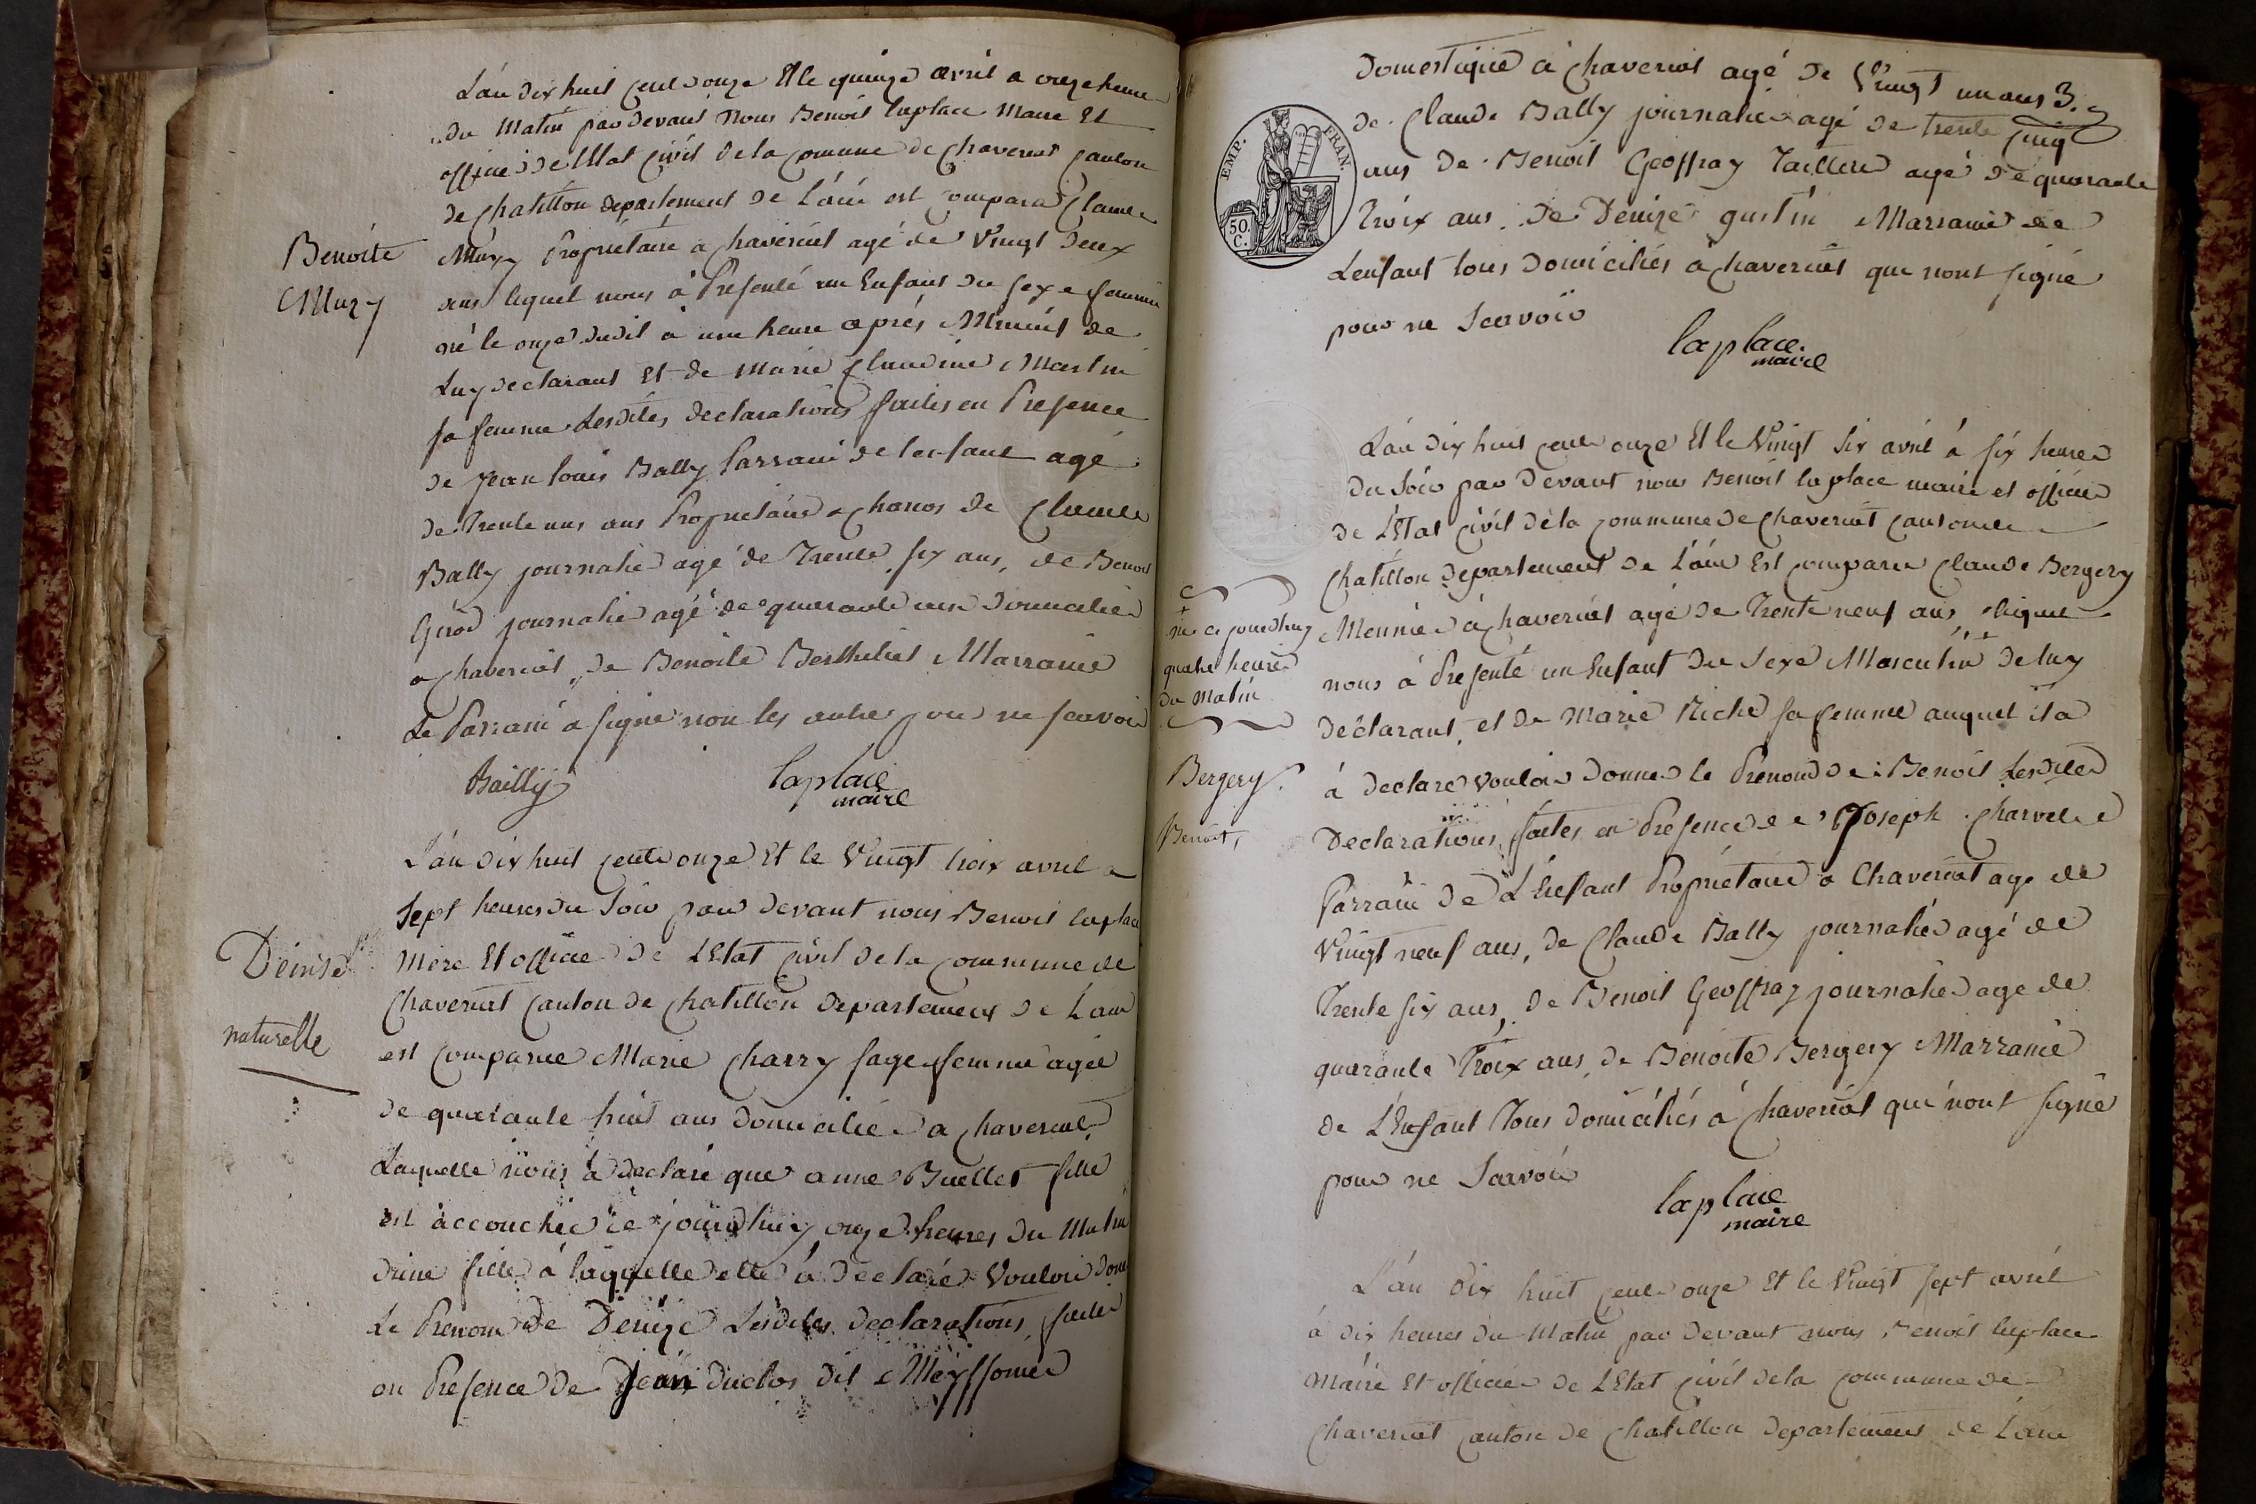 L'an dix huit cent onze Et le quinze avril a onze heures
du Matin par devant Nous Benoit laplace Maire Et
officier de l'Etat Civil de la Comune de Chaveriat Canton
de Chatillon departement de L'ain est comparu Claude
Benoite
Mury
Mury Propriétaire a Chaveriat agé de Vingt deux
ans lequel nous à Presenté un Enfant du sexe feminin
né le onze dudit à une heure après Minuit de
Luy declarant Et de Marie Claudine Martin
sa femme Lesdites declarations faites en Presence
de Jean louis Bally Parrain de lenfant agé
de Trente uns ans Propriétaire a Chanos de Claude
Bally journalier agé de Trente six ans, de Benoit
journalier agé de quarante ans Domicilié
a Chaveriat, de Benoite Berthelet Marraine
Le Parrain a signé non les autres pour ne scavoir
Bailly
laplace
maire
L'an dix huit cent onze Et le Vingt trois avril a
Sept heures du Soir par devant nous Benoit laplace
Denise
naturelle
Mere Et officier de L'Etat Civil de la Commune de
Chaveriat Canton de Chatillon departement de L'ain
est Comparue Marie Charry sage femme agée
de quarante huit ans domicilié a Chaveriat
Laquelle nous à declaré que anne Buellet fille
est accouchée ce jourdhuy onze heures du Matin
dune fille à laquelle elle à declaré Vouloir donn
Le Prenom de Denize Lesdites declarations faites
en Presence de Jean duclos dit
Domestique à Chaveriat agé de Vingt un ans 3.
de Claude Bally journalier agé de trente cinq
ans de Benoit Geoffray Tailleur agé de quarante
Troix ans de Denize gustin Marraine de
Lenfant tous domiciliés à Chaveriat qui nont signé
pour ne Scavoir
EMP. FRAN.
50.
C.
laplace
maire
L'an dix huit cent onze Et le Vingt six avril à six heures
du Soir par Devant nous Benoit laplace maire et officier
de L'Etat Civil de la Commune de Chaveriat Canton de
Chatillon departement de L'ain Est comparu Claude Bergery
Meunier à Chaveriat agé de Trente neuf ans, lequel
nous à Presenté un Enfant du Sexe Masculin + de luy
+
né ce jourdhuy
quatre heures
du Matin
declarant, et de Marie Riche sa femme auquel il a
Bergery
Benoit,
à declaré Vouloir donner le Prenom de Benoit Lesdites
Declarations, faites en Presence de Joseph
Parrain de L'Enfant Propriétaire a Chaveriat agé de
Vingt neuf ans, de Claude Bally journalié agé de
Trente six ans, de Benoit Geoffray journalier age de
quarante Troix ans, de Benoite Bergery Marraine
de L'Enfant Tous domiciliés à Chaveriat qui nont signé
pour ne Scavoir
laplace
maire
L'an dix huit cent onze Et le Vingt sept avril
à dix heures du Matin par devant nous Benoit laplace
Maire Et officier de L'Etat Civil de la Commune de
Chaveriat Canton de Chatillon departement de L'ain